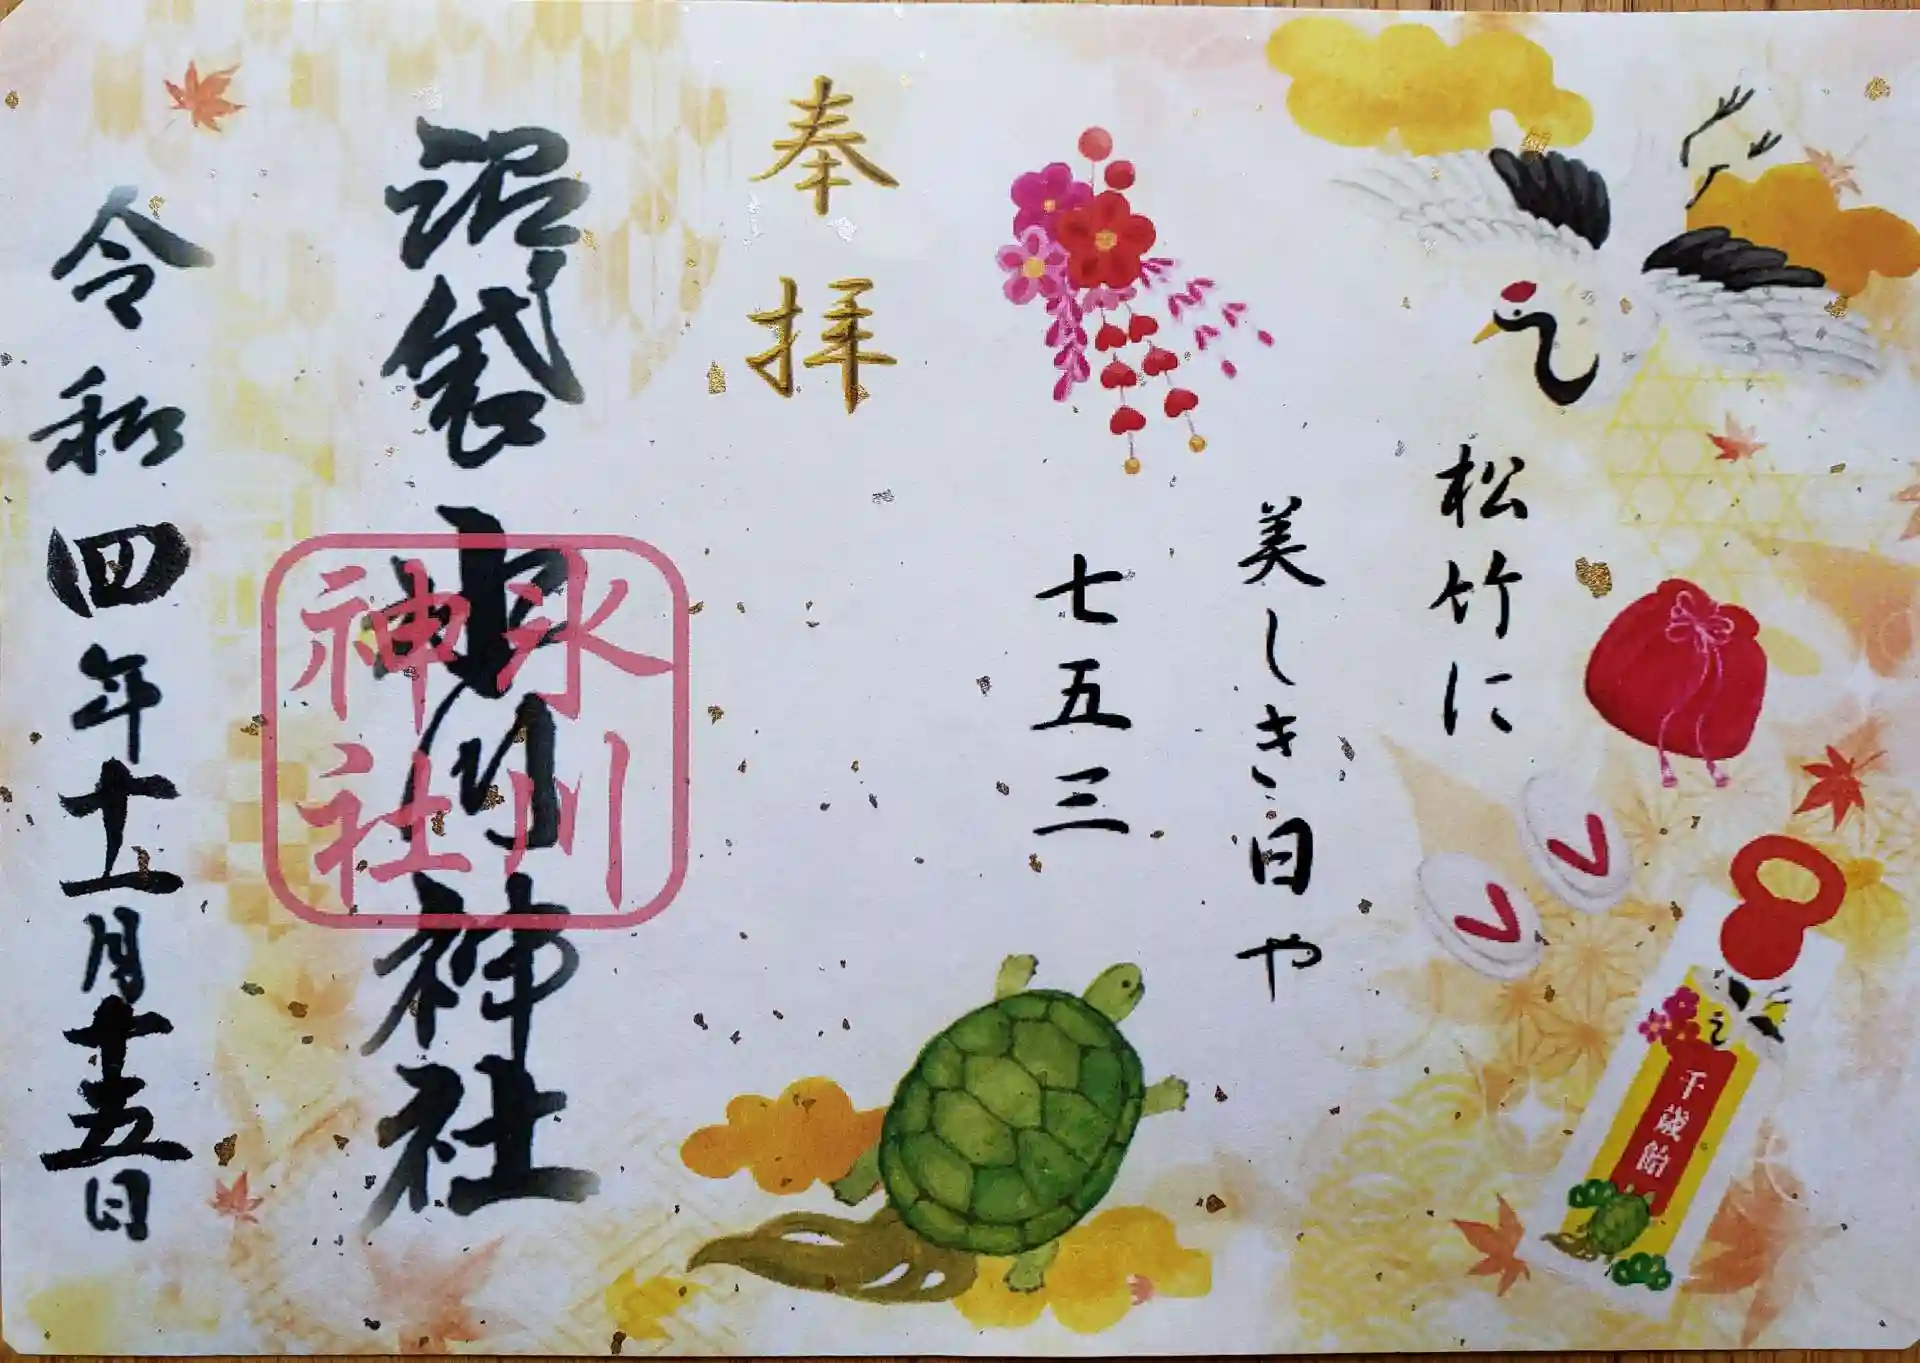 松竹に
美しき日や
七五三
奉拝
沼袋氷川神社
氷川
神社
令和四年十一月十五日
千歳飴